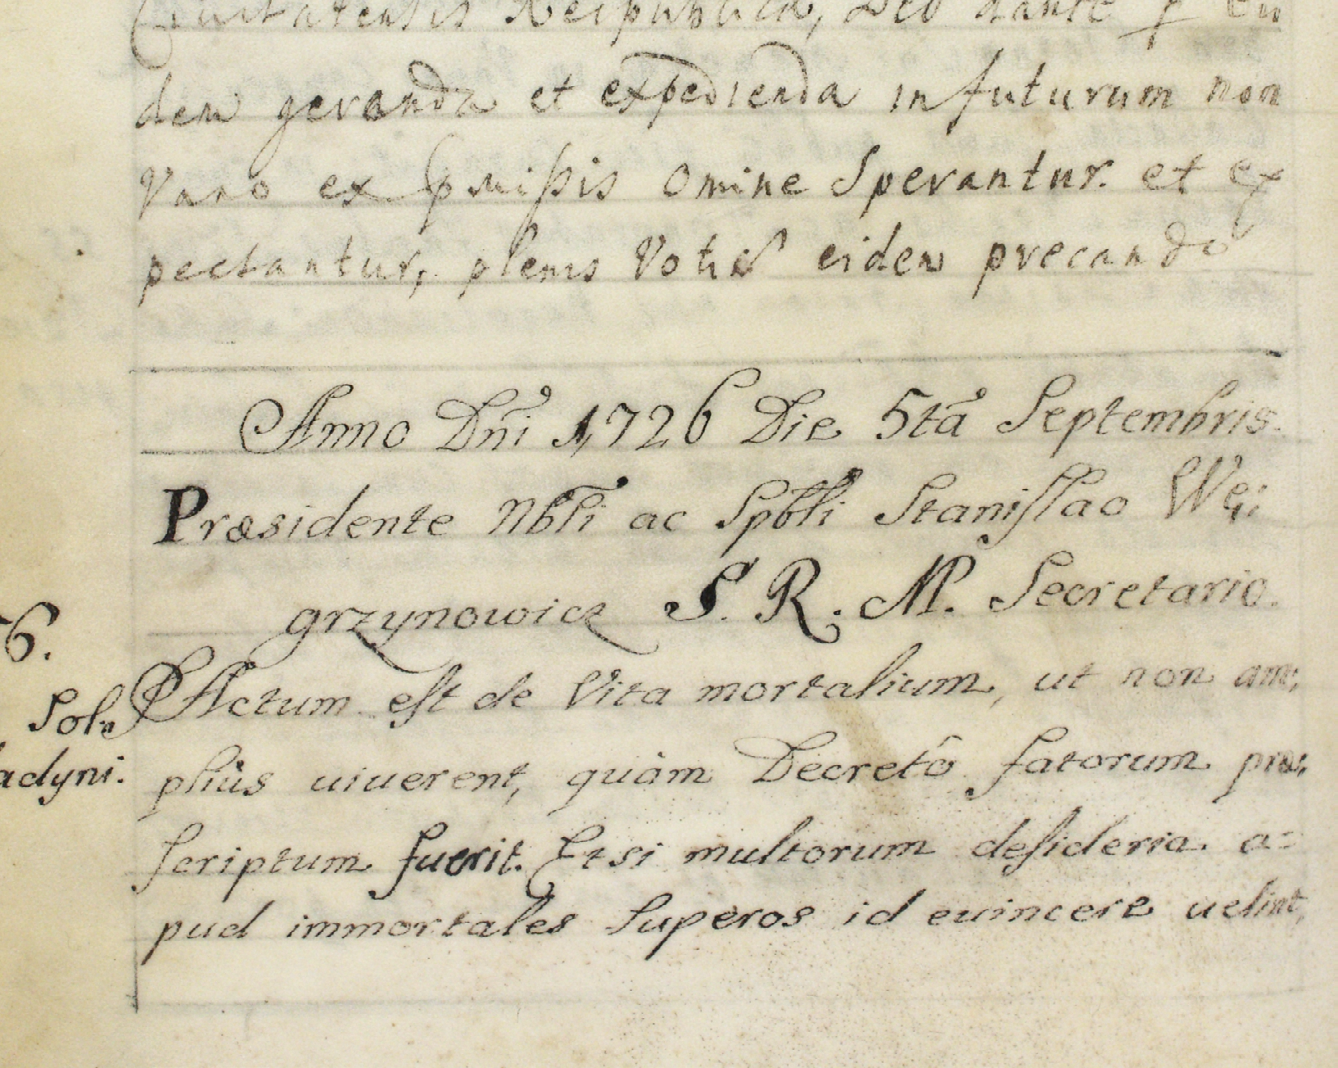 Civitatensis Reipublicæ, Deo dante p eu
dem geranda et expedienda in futurum non
Vano ex præmissis omine Sperantur. et ex
pectantur, plenis Votis eidem precando
Anno Dni 1726 Die 5ta Septembris.
Præsidente Nbli ac Spbli Stanislao Wę:
grzynowicz S. R. M. Secretario.
6.
Actum est de Vita mortalium, ut non am:
Sol.
plius uiuerent, quàm Decretô fatorum præ:
adyni.
scriptum fuerit. Etsi multorum desideria a=
pud immortales Superos id euincere uelint,